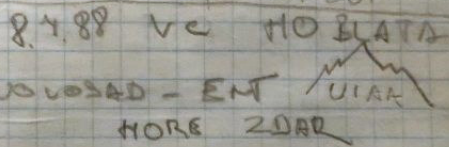 8.4.88 VC HO BLATA
NOVOSAD - ENT UIAA
HORE ZDAR